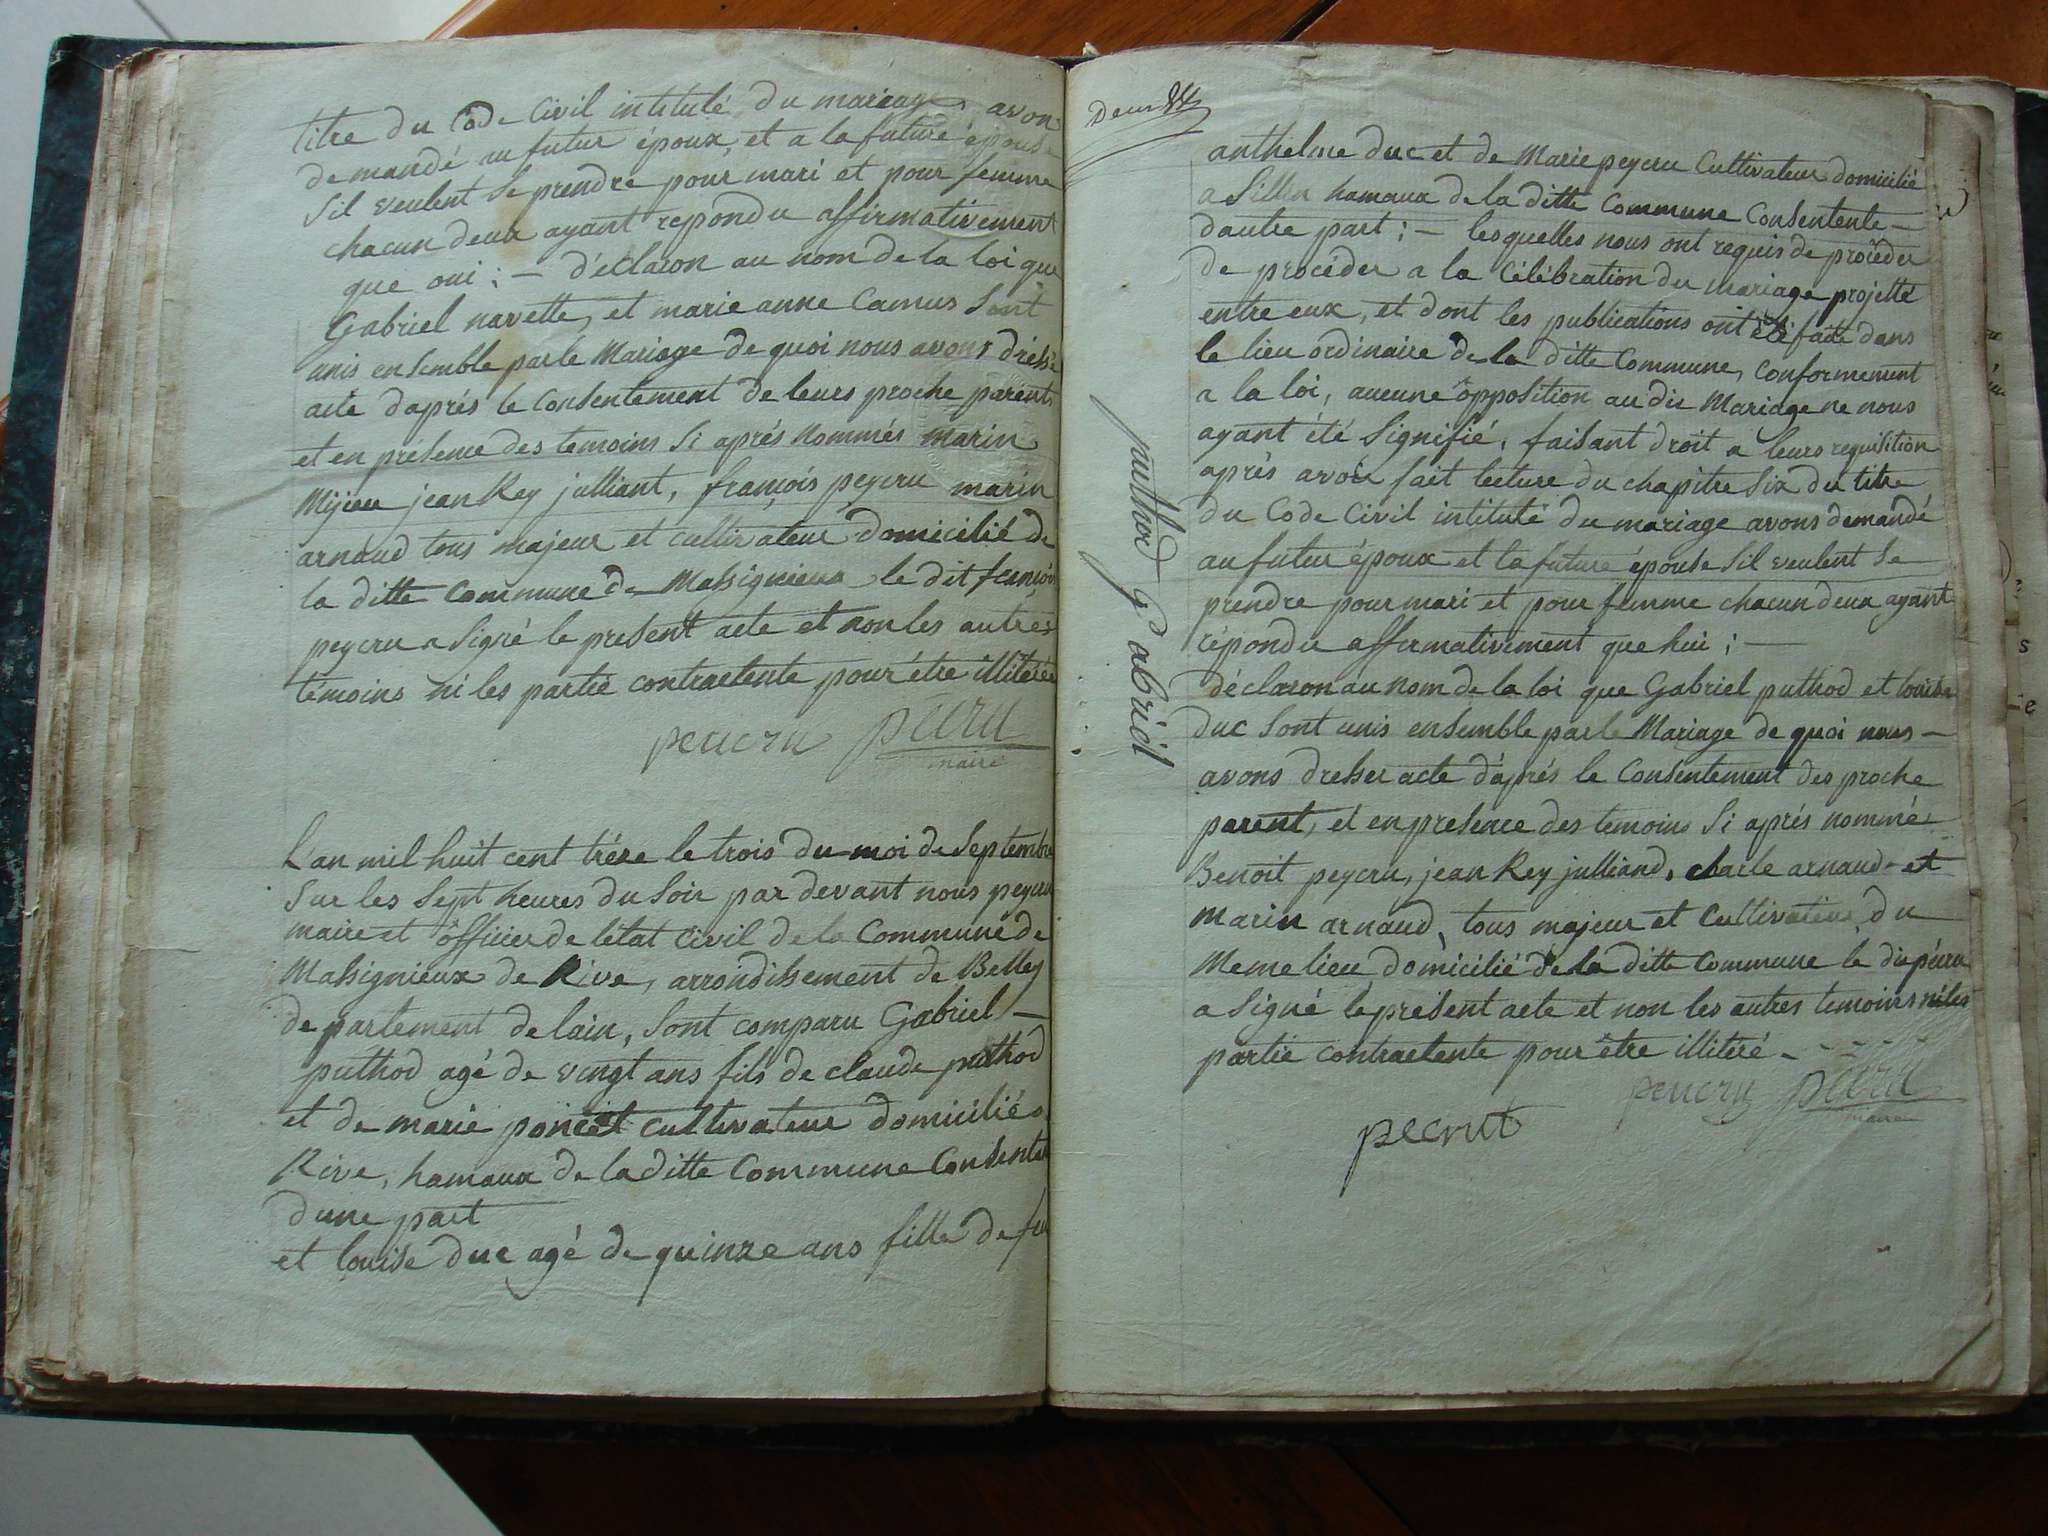 titre du Code Civil intitulé du mariage, avon
demandé au futur époux, et a la future épouse
Sil veulent Se prendre pour mari et pour femme
chacun deux ayant repondu affirmativement
que oui : — déclaron au nom de la loi que
Gabriel navette, et marie anne Camus Sont
unis ensemble par le Mariage de quoi nous avons dréssé
acte daprés le Consentement de leurs proche parents
et en présence des temoins Si aprés Nommés marin
Mijieu jean Rey julliant, françois peycru marin
arnaud tous majeur et cultivateur domicilié de
la ditte Commune de Massignieux le dit françois
peycru a Signé le present acte et non les autres
témoins ni les partie contractente pour être illiterés
peucru pecru
maire
L'an mil huit cent trèze le trois du moi de Septembre
Sur les Sept heures du Soir par devant nous peycru
maire et officier de létat Civil de la Commune de
Massignieux de Rive, arrondissement de Belley
departement de lain, Sont comparu Gabriel —
puthod agé de vingt ans fils de claude puthod
et de marie poncet cultivateur domiciliés
Rive, hamaux de la ditte Commune Consenta
dune part
et louise duc agé de quinze ans fille de feu
Deux
puthod Gabriel
anthelme duc et de Marie peycru Cultivateur domicilié
a Sillin hamaux de la ditte Commune Consentente —
dautre part ; — lesquelles nous ont requis de procèder
de procéder a la Célébration du mariage projetté
entre eux, et dont les publications ont été faite dans
le lieu ordinaire de la ditte Commune, Conformement
a la loi, aucune opposition au dit Mariage ne nous
ayant été Signifié, faisant droit a leurs requisition
aprés avoir fait lecture du chapitre Six du titre
du Code Civil intitulé du mariage avons demandé
au futur époux et la future épouse Sil veulent Se
prendre pour mari et pour femme chacun deux ayant
répondu affirmativement que hui ; —
déclaron au nom de la loi que Gabriel puthod et louise
duc Sont unis ensemble par le Mariage de quoi nous —
avons dresser acte d'aprés le Consentement des proche
parent, et en presence des temoins Si aprés nommé
Benoit peycru, jean Rey julliand, charle arnaud et
marin arnaud, tous majeur et Cultivateur du
Meme lieu domicilié de la ditte Commune le dit pécru
a Signé le présent acte et non les autres temoins ni les
partie contractente pour être illitéré -
peucru pecru
maire
pecrut